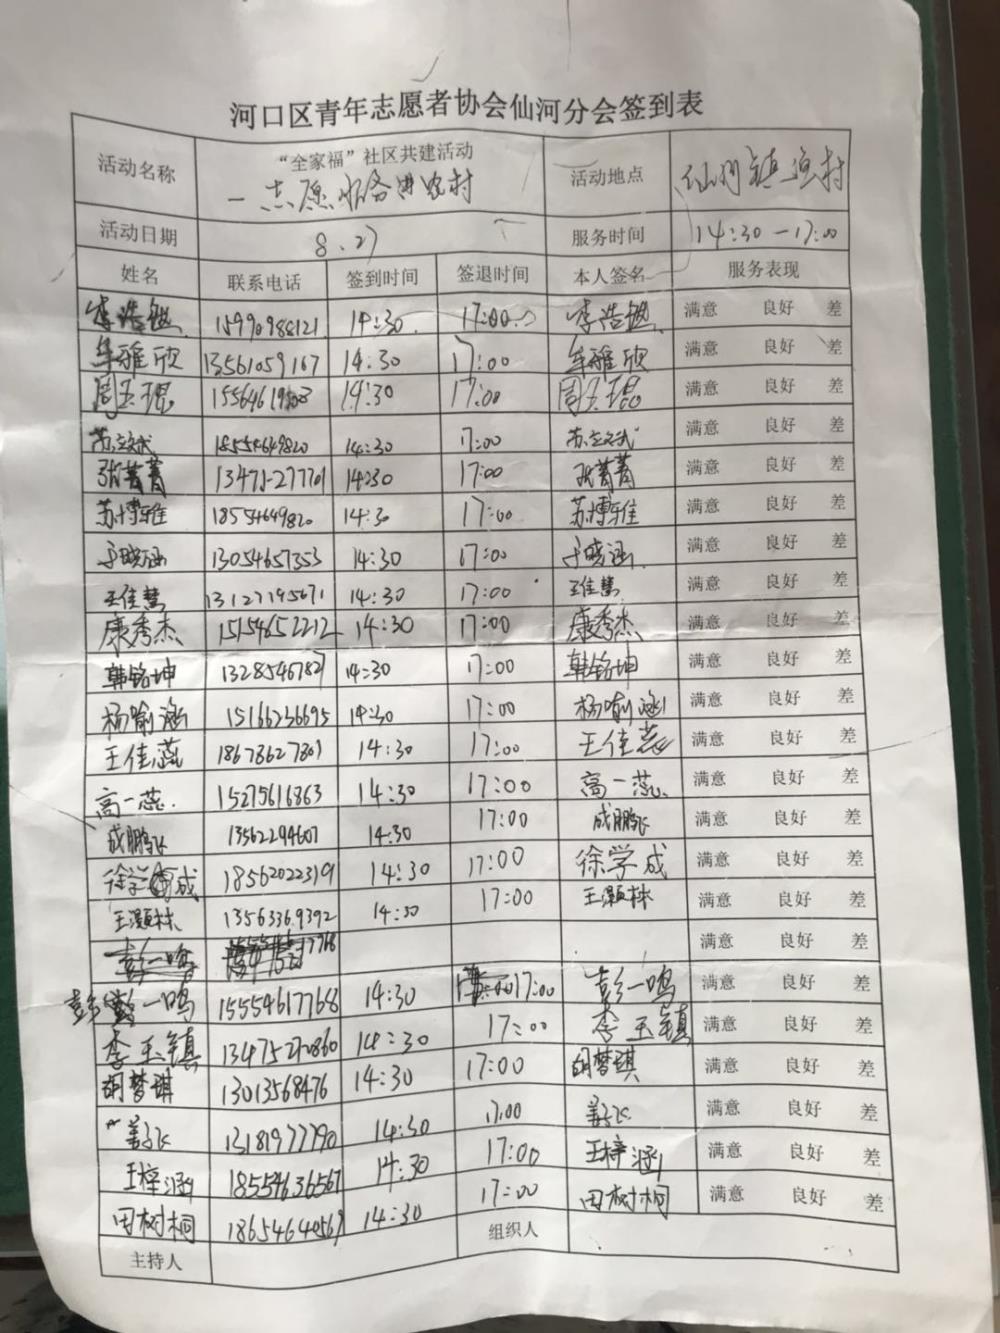 河口区青年志愿者协会仙河分会签到表
活动名称 “全家福”社区共建活动 活动地点 仙河镇渔村
一志愿服务进农村
活动日期 8.27 服务时间 14:30—17:00
姓名 联系电话 签到时间 签退时间 本人签名 服务表现
李浩 15990988121 14:30 17:00 李浩 满意 良好 差
牟雅欣 13561059167 14:30 17:00 牟雅欣 满意 良好 差
周玉琨 14:30 17:00 周玉琨 满意 良好 差
苏立斌 18554649820 14:30 17:00 苏立斌 满意 良好 差
张菁菁 14:30 17:00 张菁菁 满意 良好 差
苏博雅 18554649820 14:30 17:00 苏博雅 满意 良好 差
于晓涵 13054657353 14:30 17:00 于晓涵 满意 良好 差
王佳慧 13127195671 14:30 17:00 王佳慧 满意 良好 差
康秀杰 15154652212 14:30 17:00 康秀杰 满意 良好 差
韩铭坤 13285467827 14:30 17:00 韩铭坤 满意 良好 差
杨喻涵 15166236695 14:30 17:00 杨喻涵 满意 良好 差
王佳蕊 18678627801 14:30 17:00 王佳蕊 满意 良好 差
高一蕊. 15275616863 14:30 17:00 高一蕊. 满意 良好 差
成鹏飞 13562294607 14:30 17:00 成鹏飞 满意 良好 差
徐学成 18562022319 14:30 17:00 徐学成 满意 良好 差
王灏林 13563369392 14:30 17:00 王灏林 满意 良好 差
彭一鸣 满意 良好 差
彭一鸣 15554617768 14:30 17:00 彭一鸣 满意 良好 差
李玉镇 13475270860 14:30 17:00 李玉镇 满意 良好 差
胡梦琪 13013568476 14:30 17:00 胡梦琪 满意 良好 差
姜飞 13181977790 14:30 17:00 姜飞 满意 良好 差
王梓涵 18554636567 14:30 17:00 王梓涵 满意 良好 差
田树桐 18654640569 14:30 17:00 田树桐 满意 良好 差
主持人 组织人